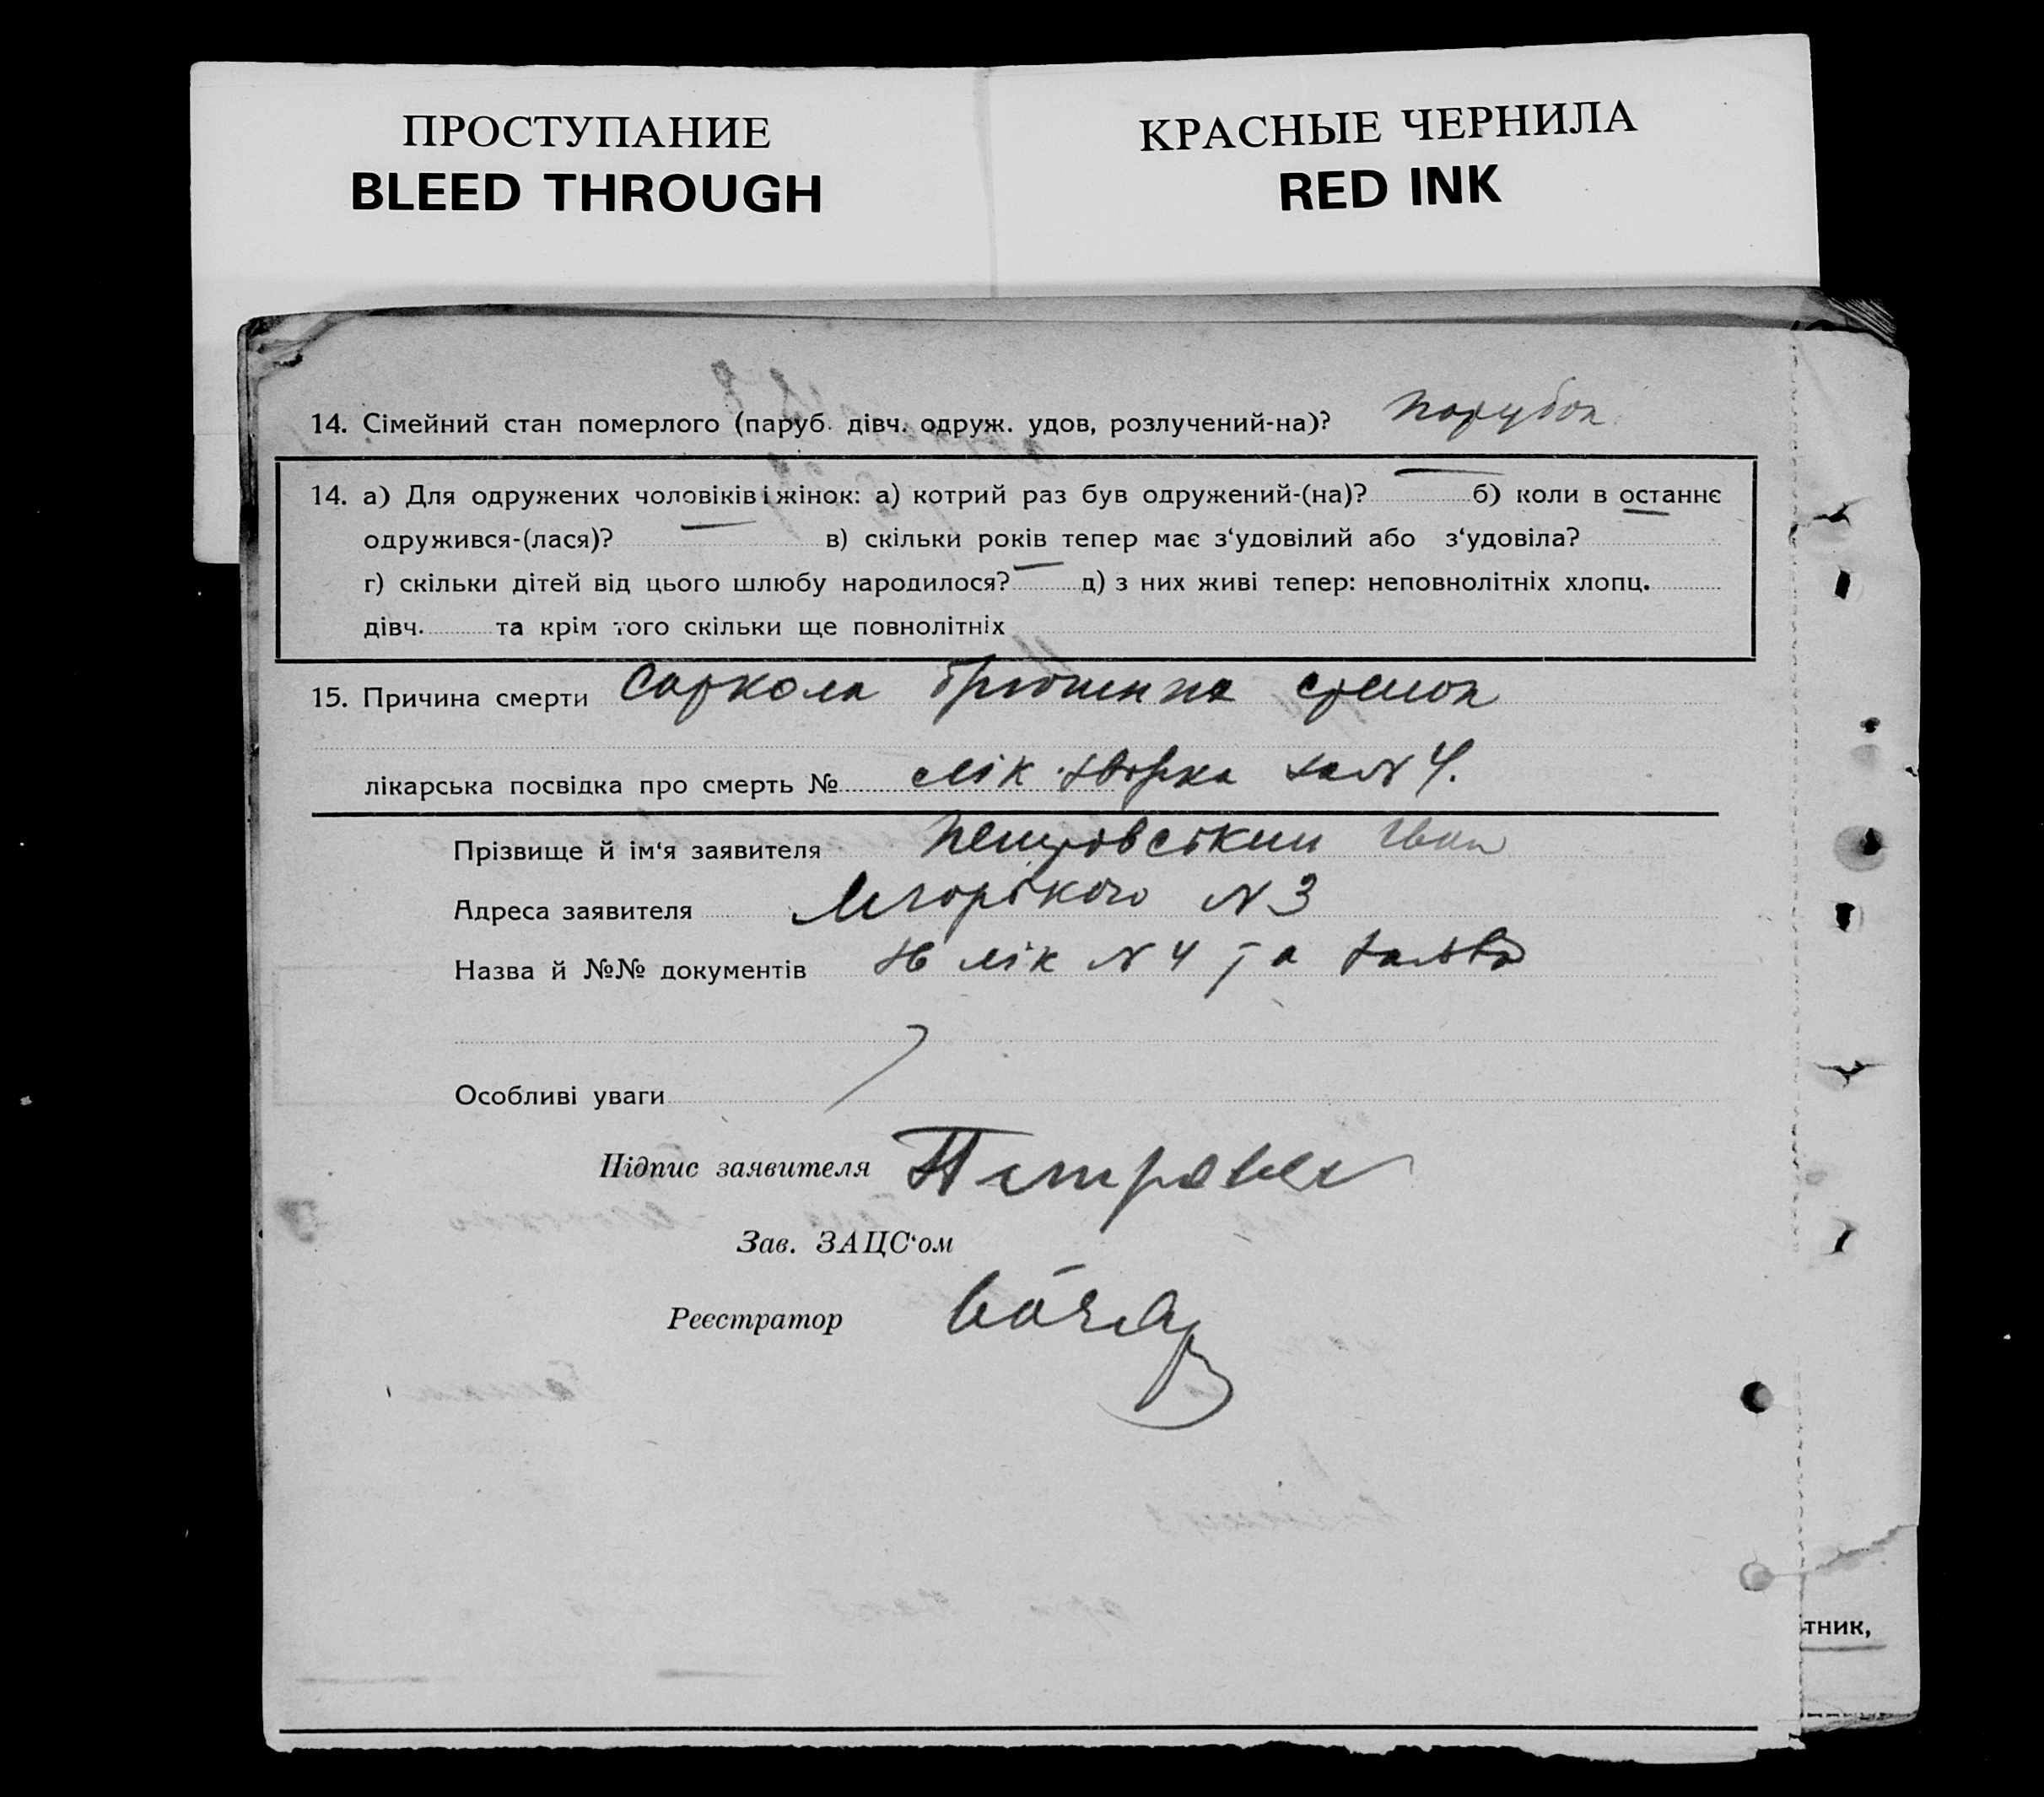 ПРОСТУПАНИЕ
BLEED THROUGH
КРАСНЫЕ ЧЕРНИЛА
RED INK
14. Сімейний стан померлого (паруб. дівч. одруж. удов, розлучений-на)? парубок
14. а) Для одружених чоловіків і жінок: а) котрий раз був одружений-(на)? — б) коли в останнє
одружився-(лася)? — в) скільки років тепер має з‘удовілий або з‘удовіла? —
г) скільки дітей від цього шлюбу народилося? — д) з них живі тепер: неповнолітніх хлопц.
дівч. та крім того скільки ще повнолітніх
15. Причина смерти Саркома
лікарська посвідка про смерть № лік. №4.
Прізвище й ім‘я заявителя Петровський Іван
Адреса заявителя М горького N 3
Назва й №№ документів лік N 4 та
Особливі уваги
Підпис заявителя
Зав. ЗАЦС‘ом
Реєстратор
тник,